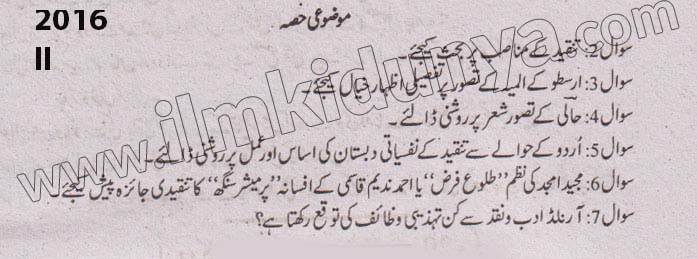 2016
II
موضوعی حصہ
سوال2: تنقید کے مناصب پر بحث کیجئے۔
سوال3: ارسطو کے المیہ کے تصور پر تفصیلی اظہار خیال کیجئے۔
سوال4: حالی کے تصور شعر پر روشنی ڈالئے۔
سوال5: اُردو کے حوالے سے تنقید کے نفسیاتی دبستان کی اساس اور عمل پر روشنی ڈالئے۔
سوال6: مجید امجد کی نظم ”طلوع فرض“ یا احمد ندیم قاسمی کے افسانہ ”پرمیشر سنگھ“ کا تنقیدی جائزہ پیش کیجئے۔
سوال7: آرنلڈ ادب و نقد سے کن تہذیبی وظائف کی توقع رکھتا ہے؟
www.ilmkidunya.com